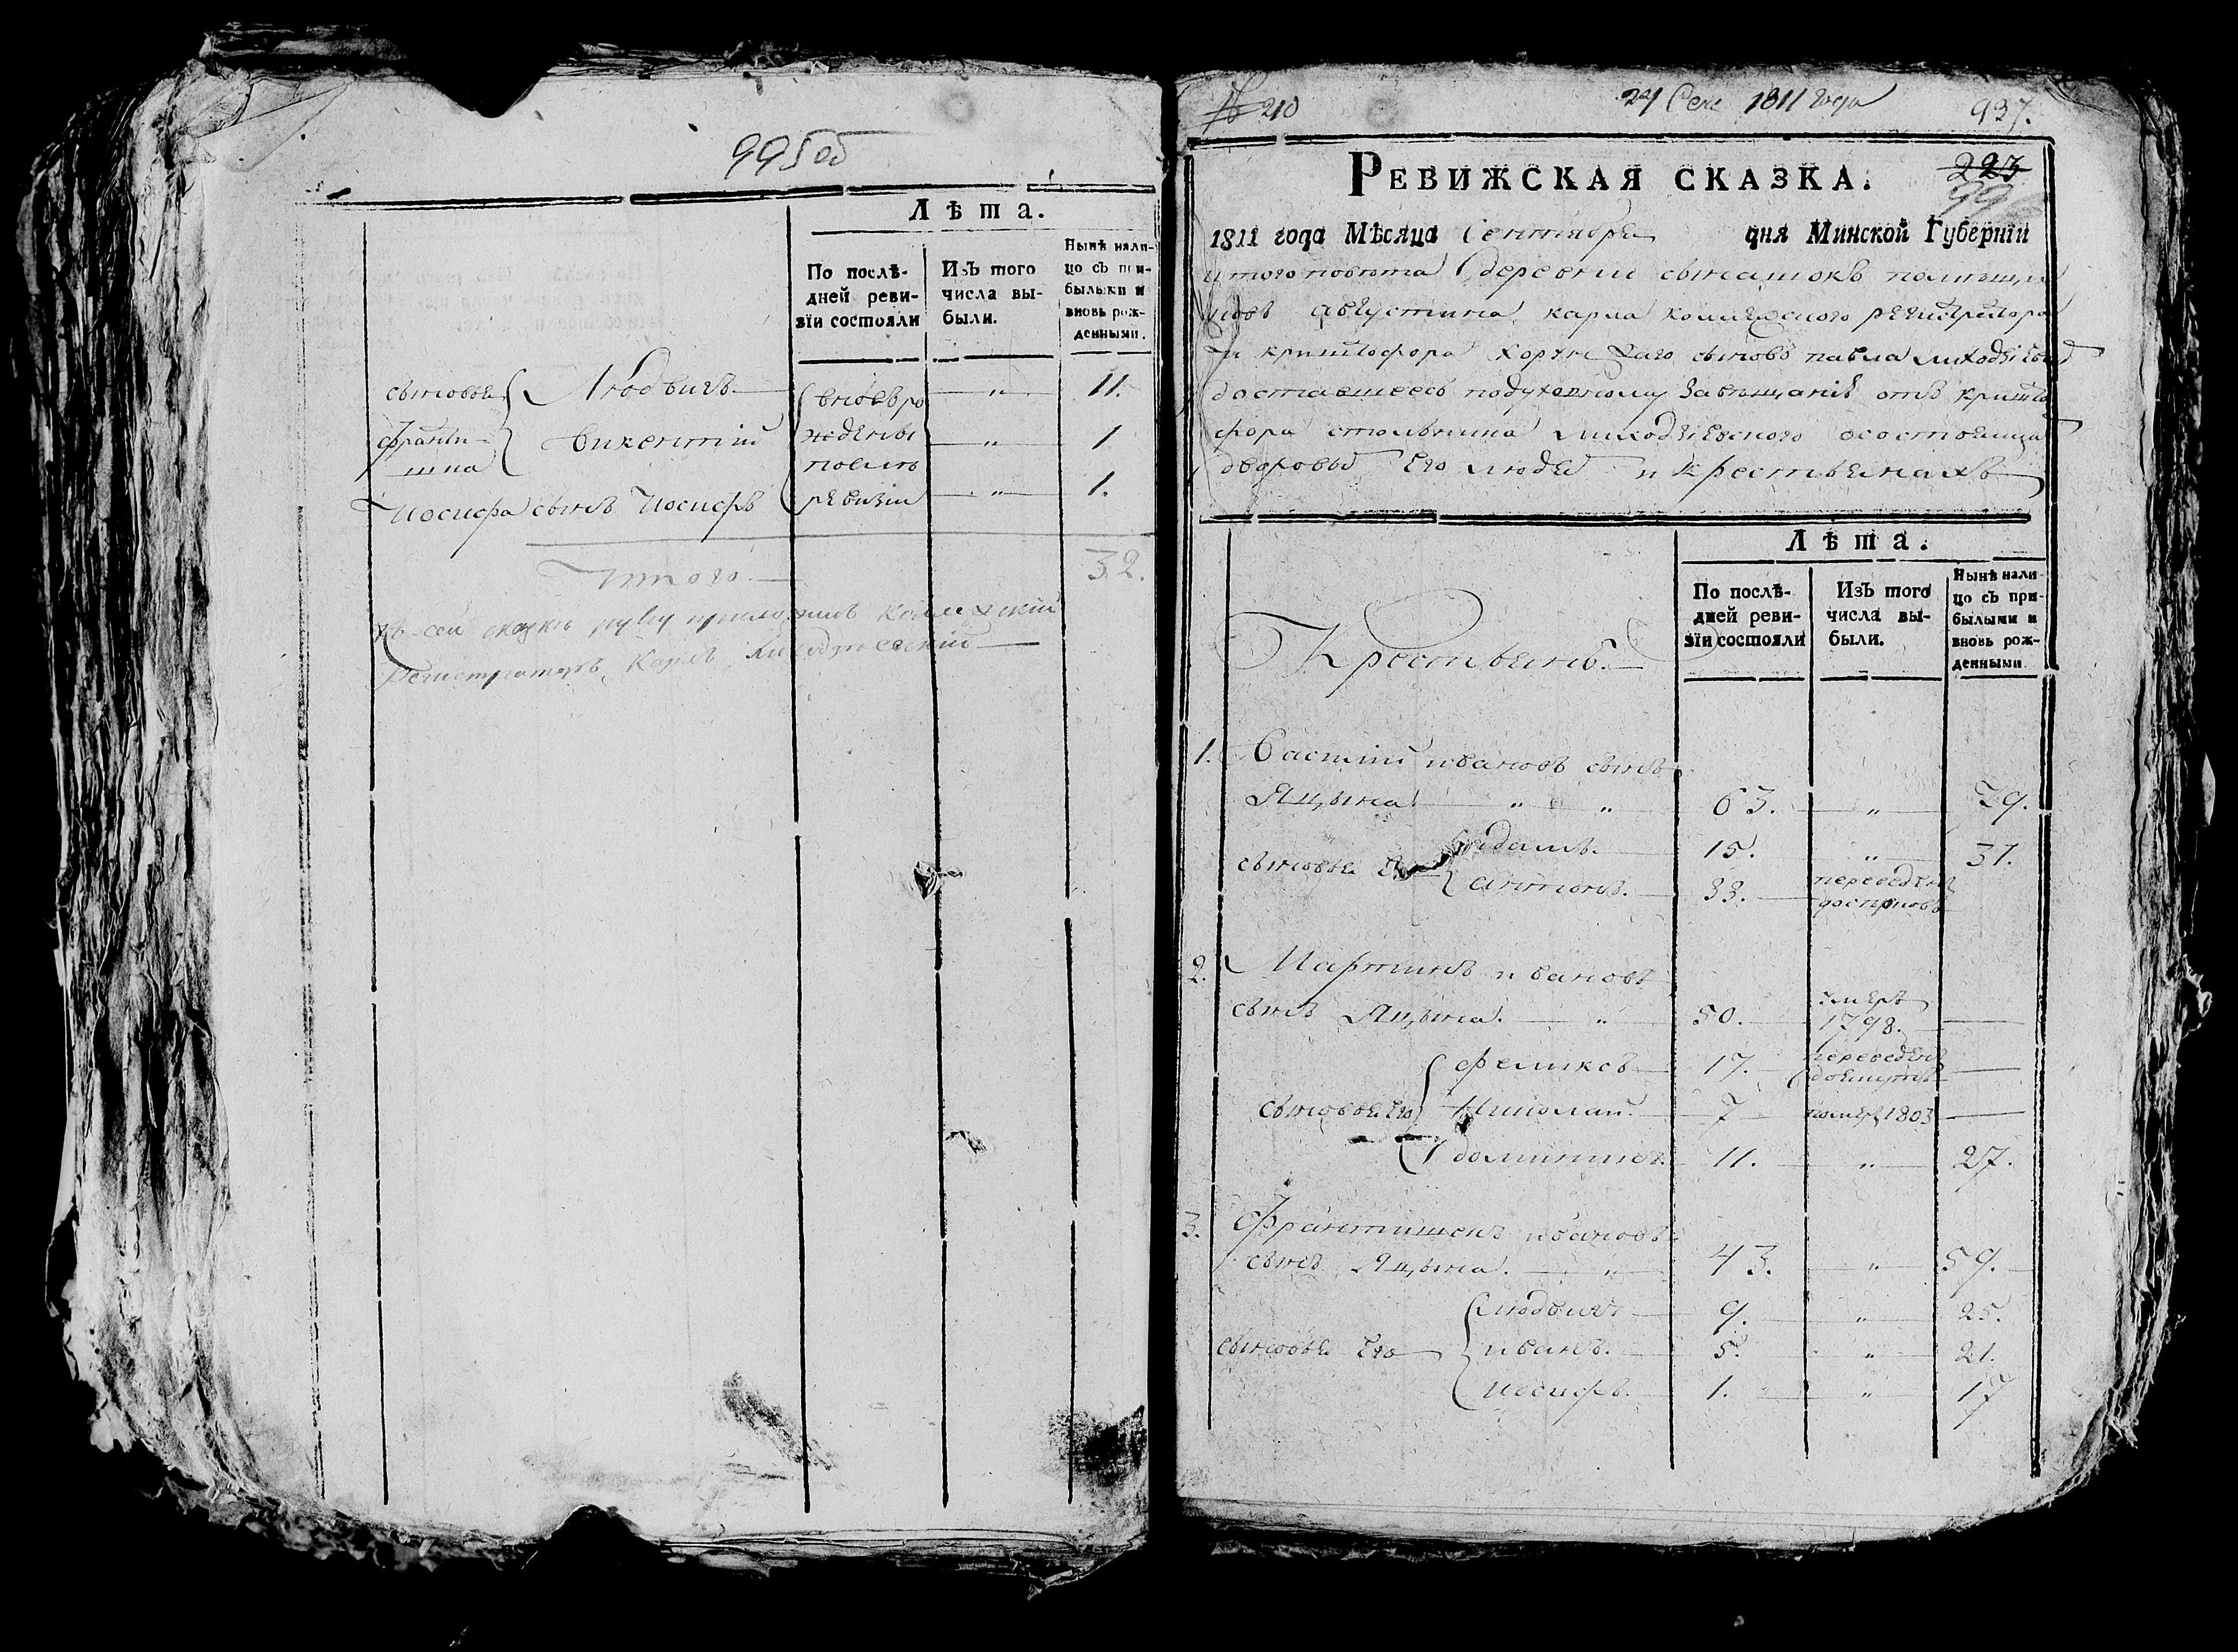 995 об
Лѣта.
По послѣ-
дней реви-
зіи состояли
Изъ того
числа вы-
были.
Нынѣ нали-
цо съ при-
былыми и
вновь рож-
денными.
сыновья Людвигъ вновь ро " 11.
Франци-
шка Викентий ждены " 1
после
Иосифа сынъ Иосифъ ревизіи " 1.
Итого 32.
Къ сей сказке руку приложилъ Колежскій
Регистраторъ Карлъ
№ 210
27 Сен 1811 года
937.
Ревижская сказка.
223
1811 года Мѣсяца Сентября дня Минской Губерніи
повѣта деревни
Августина Карла колежского регистратора
и криштофора хорунжаго сыновъ павла
доставшееся подуховному завѣщанію отъ кришто
фора столника о состоящихъ
дворовыхъ его людей и крестьянахъ
Лѣта.
По послѣ-
дней реви-
зіи состояли
Изъ того
числа вы-
были.
Нынѣ нали-
цо съ при-
былыми и
вновь рож-
денными.
Крестьянъ.
1. Василий ивановъ сынъ
Яцына " " 63. " 79.
сыновья Его адамъ. 15. " 31.
антонъ. 33. переведенъ
2. Мартинъ ивановъ
сынъ Яцына. " 50. умеръ
1798.
феликсъ 17. переведенъ
сыновья Его Николай. 7 помер 1803
доминикъ. 11. " 27.
3. Франтишекъ ивановъ
сынъ Яцына. " 43. " 59.
людвигъ 9. " 25.
сыновья Его иванъ. 5. " 21.
иосифъ. 1. " 17